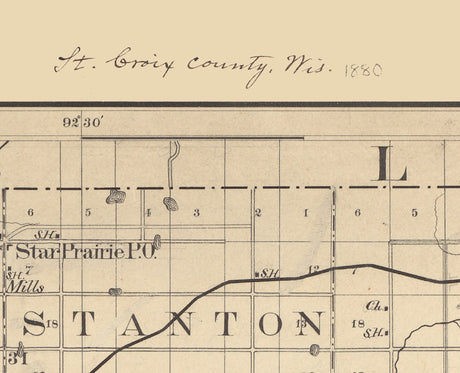 St. Croix County, Wis. 1880
92°30'
L
6 5 4 3 2 1 6 5
S.H.
Star Prairie P.O.
7 S.H. 12 7
S.H.
Mills
Ch.
S 18 TANTON 13 18
S.H.
31